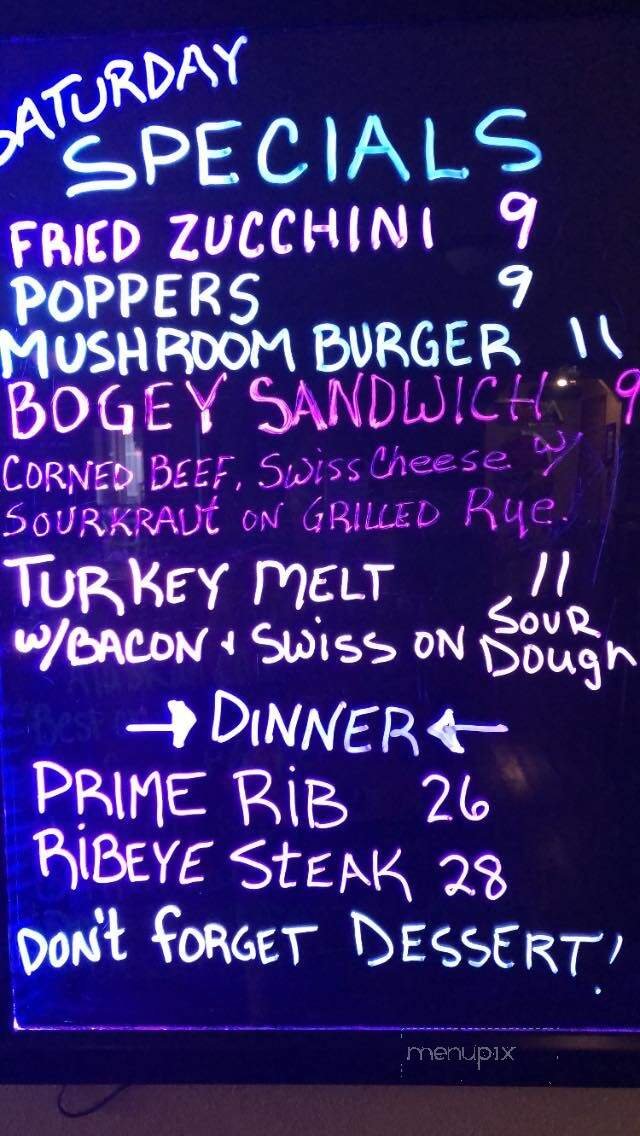 SATURDAY
SPECIALS
FRIED ZUCCHINI 9
POPPERS 9
MUSHROOM BURGER 11
BOGEY SANDWICH 9
CORNED BEEF, Swiss Cheese w/
SOURKRAUt ON GRILLED Rye.
TURKEY MELT 11
w/BACON + SwiSS ON SOUR Dough
→ DINNER ←
PRIME RiB 26
RiBEYE STEAK 28
DON't fORGET DESSERT!
menupix